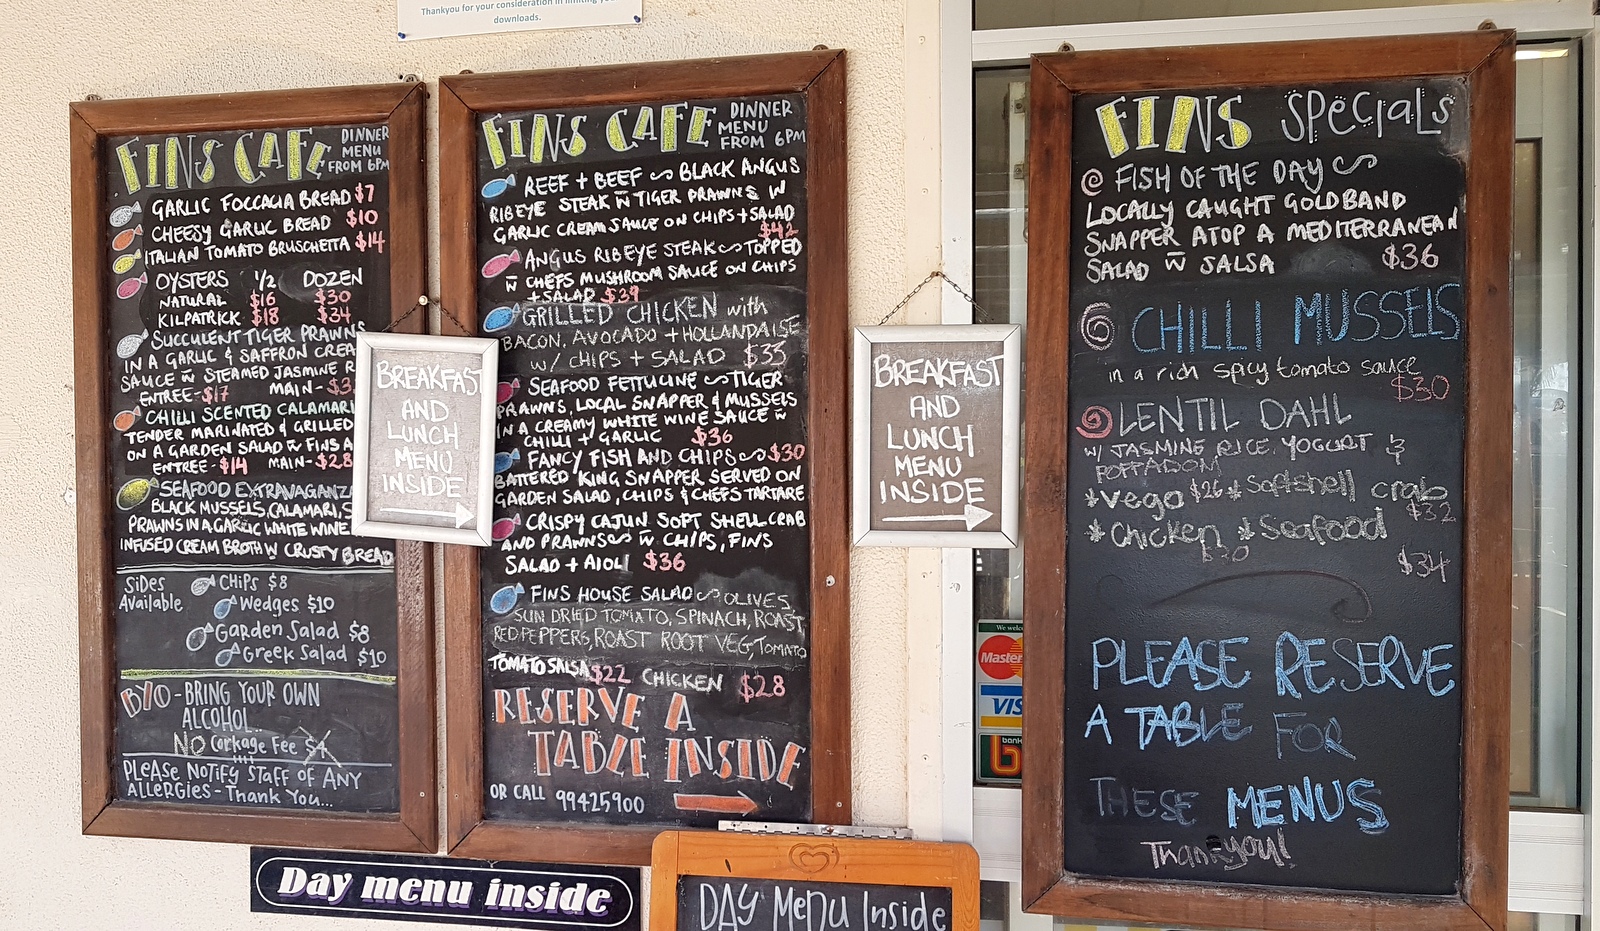 Thankyou for your consideration in limiting
downloads.
FINS CAFE
DINNER
MENU
FROM 6PM
GARLIC FOCCACIA BREAD $7
CHEESY GARLIC BREAD $10
ITALIAN TOMATO BRUSCHETTA $14
OYSTERS 1/2 DOZEN
NATURAL $16 $30
KILPATRICK $18 $34
SUCCULENT TIGER PRAWNS
IN A GARLIC & SAFFRON
SAUCE W STEAMED JASMINE
ENTREE-$17 MAIN-
CHILLI SCENTED CALAMARI
TENDER MARINATED & GRILLED
ON A GARDEN SALAD W FINS
ENTREE-$14 MAIN-$28
SEAFOOD
BLACK MUSSELS, CALAMARI,
PRAWNS IN A GARLIC WHITE WINE
INFUSED CREAM BROTH W CRUSTY BREAD
SiDES
AVailable
CHiPS $8
Wedges $10
Garden Salad $8
Greek Salad $10
BYO - BRING YOUR OWN
ALCOHOL..
NO Corkage Fee $4
PLEASE NOTIFY STAFF OF ANY
ALLERGIES - THANK YOU...
FINS CAFE
DINNER
MENU
FROM 6PM
REEF + BEEF ~ BLACK ANGUS
RIBEYE STEAK W TIGER PRAWNS W
GARLIC CREAM SAUCE ON CHIPS + SALAD
$42
ANGUS RIBEYE STEAK ~ TOPPED
W CHEFS MUSHROOM SAUCE ON CHIPS
+ SALAD $39
GRILLED CHICKEN with
BACON, AVOCADO + HOLLANDAISE
W/ CHIPS + SALAD $33
SEAFOOD FETTUCINE ~ TIGER
PRAWNS, LOCAL SNAPPER & MUSSELS
IN A CREAMY WHITE WINE SAUCE W
CHILLI + GARLIC $36
FANCY FISH AND CHIPS ~ $30
BATTERED KING SNAPPER SERVED ON
GARDEN SALAD, CHIPS & CHEFS TARTARE
CRISPY CAJUN SOFT SHELL CRAB
AND PRAWNS ~ W CHIPS, FINS
SALAD + AIOLI $36
FINS HOUSE SALAD ~ OLIVES,
SUN DRIED TOMATO, SPINACH, ROAST
RED PEPPERS, ROAST ROOT VEG, TOMATO
TOMATO SALSA $22 CHICKEN $28
RESERVE A
TABLE INSIDE
OR CALL 99425900
BREAKFAST
AND
LUNCH
MENU
INSIDE
BREAKFAST
AND
LUNCH
MENU
INSIDE
FINS SPeciaLs
FISH OF THE DAY ~
LOCALLY CAUGHT GOLDBAND
SNAPPER ATOP A MEDITERRANEAN
SALAD W SALSA $36
CHILLI MUSSELS
in a rich spicy tomato sauce
$30
LENTIL DAHL
W/ JASMINE RICE, YOGURT &
POPPADOM
*Vego $26 *Softshell crab
$32
*Chicken *Seafood
$30
$34
PLEASE RESERVE
A TABLE FOR
THESE MENUS
Thankyou!
Master
VIS
bank
Day menu inside
DAY MeNU Inside